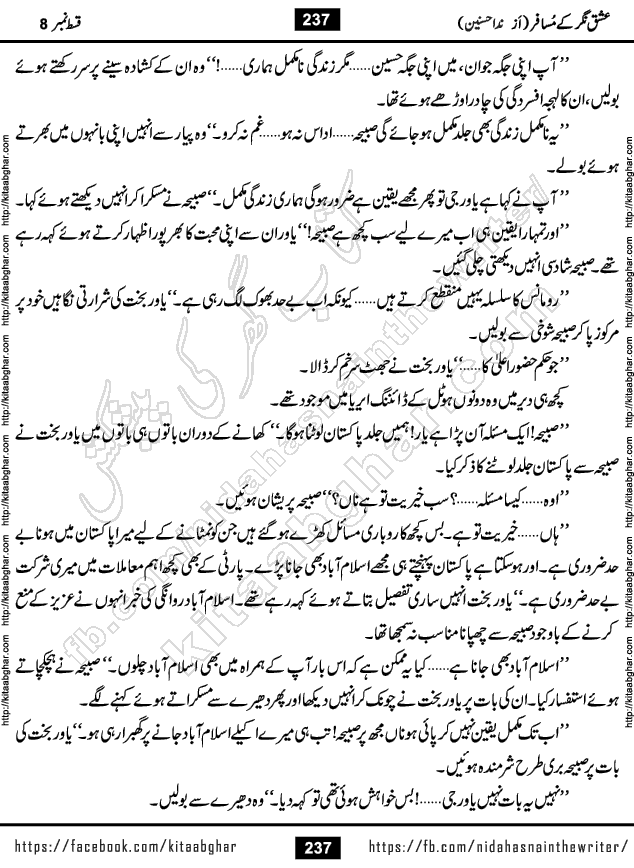 عشق نگر کے مُسافر (از ندا حسنین)
237
قسط نمبر 8
’’آپ اپنی جگہ جوان، میں اپنی جگہ حسین......مگر زندگی نامکمل ہماری......!‘‘ وہ ان کے کشادہ سینے پر سر رکھتے ہوئے
بولیں، ان کا لہجہ افسردگی کی چادر اوڑھے ہوئے تھا۔
’’یہ نامکمل زندگی بھی جلد مکمل ہو جائے گی صبیحہ......اداس نہ ہو......غم نہ کرو۔‘‘ وہ پیار سے انہیں اپنی بانہوں میں بھرتے
ہوئے بولے۔
’’آپ نے کہا ہے یاور جی تو پھر مجھے یقین ہے ضرور ہوگی ہماری زندگی مکمل۔‘‘ صبیحہ نے مسکرا کر انہیں دیکھتے ہوئے کہا۔
’’اور تمہارا یقین ہی اب میرے لیے سب کچھ ہے صبیحہ!‘‘ یاور ان سے اپنی محبت کا بھرپور اظہار کرتے ہوئے کہہ رہے
تھے۔ صبیحہ شادسی انہیں دیکھتی چلی گئیں۔
’’رومانس کا سلسلہ یہیں منقطع کرتے ہیں......کیونکہ اب بے حد بھوک لگ رہی ہے۔‘‘ یاور بخت کی شرارتی نگاہیں خود پر
مرکوز پا کر صبیحہ شوخی سے بولیں۔
’’جو حکم حضور اعلیٰ کا......‘‘ یاور بخت نے جھٹ سر خم کر ڈالا۔
کچھ ہی دیر میں وہ دونوں ہوٹل کے ڈائننگ ایریا میں موجود تھے۔
’’صبیحہ! ایک مسئلہ آن پڑا ہے یار! ہمیں جلد پاکستان لوٹنا ہوگا۔‘‘ کھانے کے دوران باتوں ہی باتوں میں یاور بخت نے
صبیحہ سے پاکستان جلد لوٹنے کا ذکر کیا۔
’’اوہ......کیسا مسئلہ......؟ سب خیریت تو ہے ناں؟‘‘ صبیحہ پریشان ہوئیں۔
’’ہاں......خیریت تو ہے۔ بس کچھ کاروباری مسائل کھڑے ہو گئے ہیں جن کو نمٹانے کے لیے میرا پاکستان میں ہونا بے
حد ضروری ہے۔ اور ہو سکتا ہے پاکستان پہنچتے ہی مجھے اسلام آباد بھی جانا پڑے۔ پارٹی کے بھی کچھ اہم معاملات میں میری شرکت
بے حد ضروری ہے۔‘‘ یاور بخت انہیں ساری تفصیل بتاتے ہوئے کہہ رہے تھے۔ اسلام آباد روانگی کی خبر انہوں نے عزیز کے منع
کرنے کے باوجود صبیحہ سے چھپانا مناسب نہ سمجھا تھا۔
’’اسلام آباد بھی جانا ہے......کیا یہ ممکن ہے کہ اس بار آپ کے ہمراہ میں بھی اسلام آباد چلوں۔‘‘ صبیحہ نے ہچکچاتے
ہوئے استفسار کیا۔ ان کی بات پر یاور بخت نے چونک کر انہیں دیکھا اور پھر دھیرے سے مسکراتے ہوئے کہنے لگے۔
’’اب تک مکمل یقین نہیں کر پائی ہو ناں مجھ پر صبیحہ! تب ہی میرے اکیلے اسلام آباد جانے پر گھبرا رہی ہو۔‘‘ یاور بخت کی
بات پر صبیحہ بری طرح شرمندہ ہوئیں۔
’’نہیں یہ بات نہیں یاور جی......! بس خواہش ہوئی تھی تو کہہ دیا۔‘‘ وہ دھیرے سے بولیں۔
کتاب گھر کی پیشکش
fb.com/nidahasnainthewriter
kitaabghar.com
http://kitaabghar.com http://kitaabghar.com http://kitaabghar.com http://kitaabghar.com http://kitaabghar.com http://kitaabghar.com
http://kitaabghar.com http://kitaabghar.com http://kitaabghar.com http://kitaabghar.com http://kitaabghar.com http://kitaabghar.com
https://facebook.com/kitaabghar
237
https://fb.com/nidahasnainthewriter/